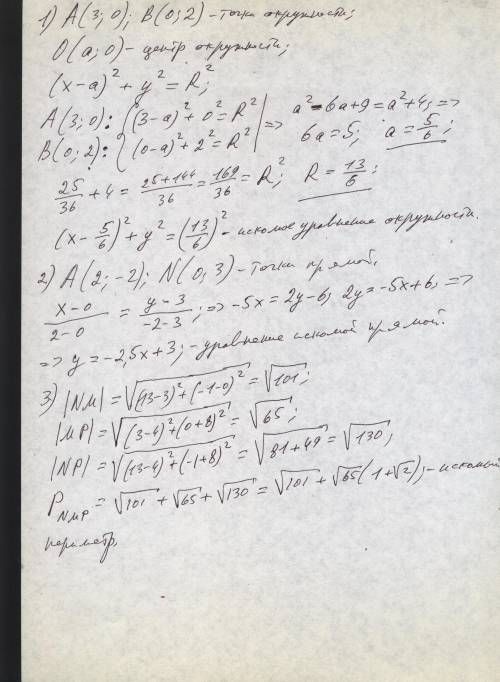 1) A(3; 0); B(0; 2) - точки окружности;
O(a; 0) - центр окружности;
(x-a)² + y² = R²;
A(3; 0): { (3-a)² + 0² = R² | => a² - 6a + 9 = a² + 4; =>
B(0; 2): { (0-a)² + 2² = R² | 6a = 5; a = 5/6;
25/36 + 4 = (25+144)/36 = 169/36 = R²; R = 13/6;
(x - 5/6)² + y² = (13/6)² - искомое уравнение окружности.
2) A(2; -2); N(0; 3) - точки прямой.
(x-0)/(2-0) = (y-3)/(-2-3); => -5x = 2y-6; 2y = -5x+6; =>
=> y = -2,5x + 3; - уравнение искомой прямой.
3) |NM| = √((13-3)² + (-1-0)²) = √101;
|MP| = √((3-4)² + (0+8)²) = √65;
|NP| = √((13-4)² + (-1+8)²) = √(81+49) = √130;
P_NMP = √101 + √65 + √130 = √101 + √65(1+√2); - искомый
периметр.